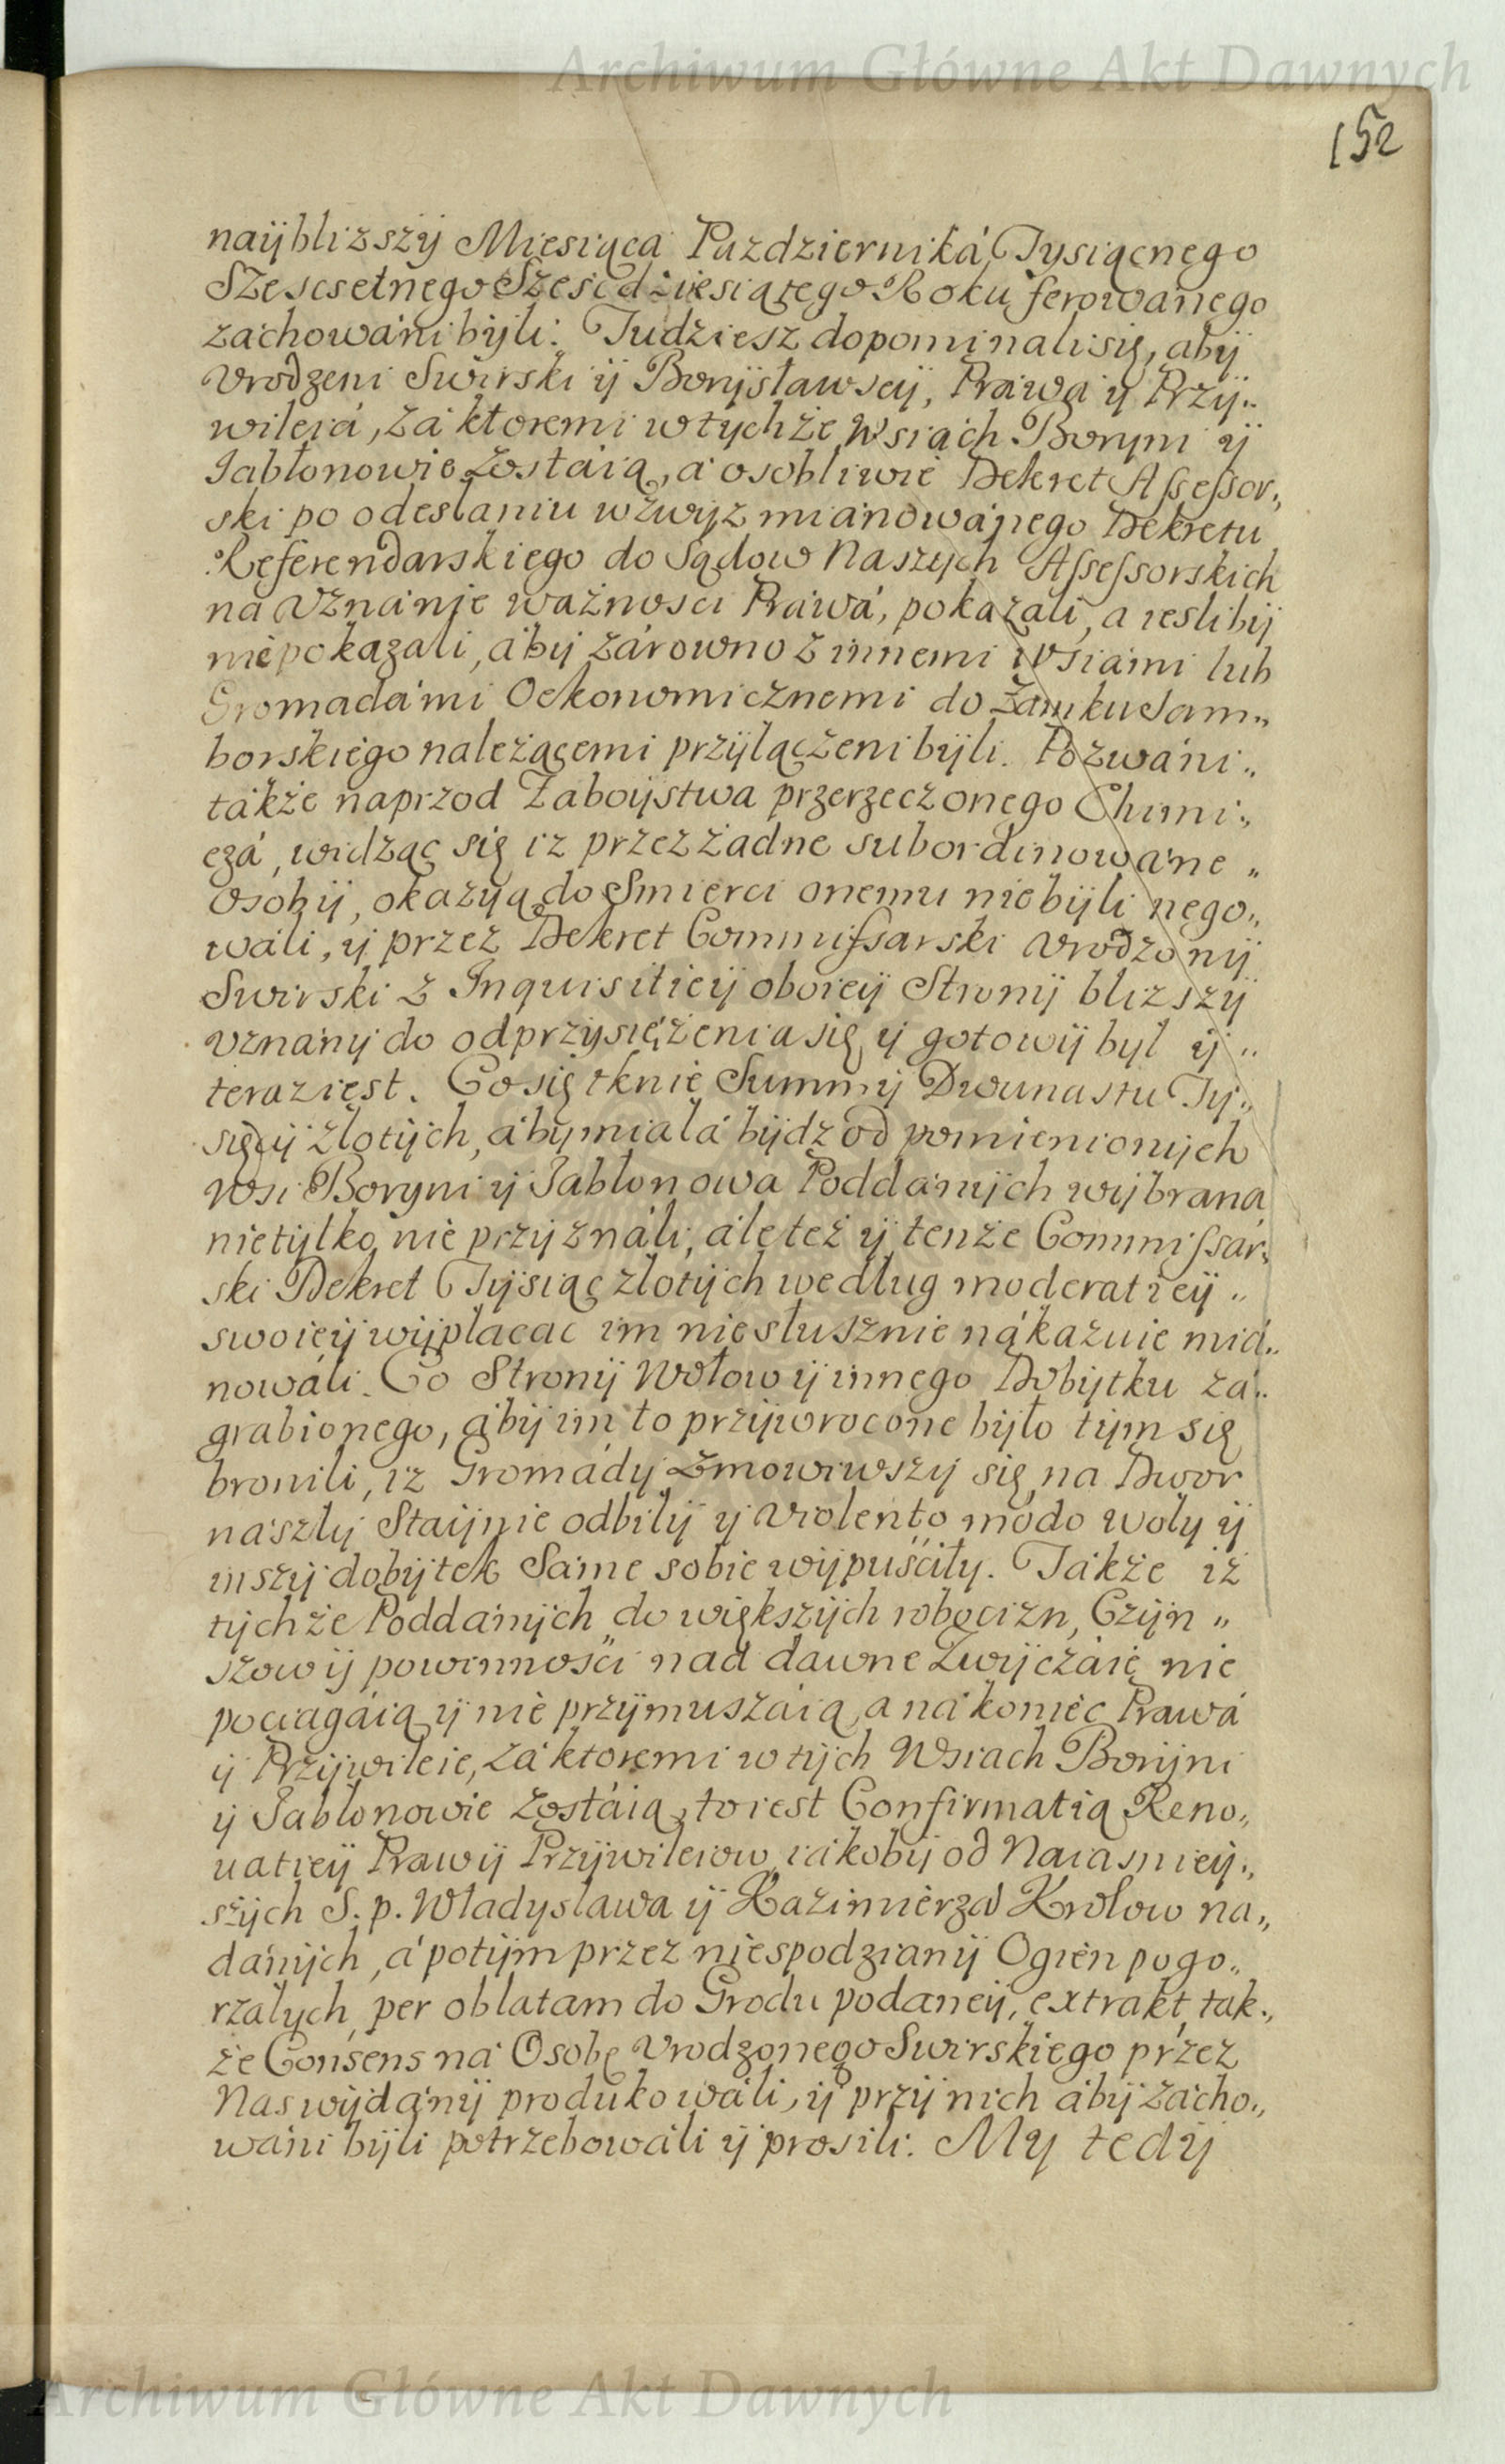 Archiwum Główne Akt Dawnych
152
naÿbliższÿ Miesiąca Pazdzierniká Tysiącnego
Szescsetnego Szescdziesiątego Roku ferowanego
záchowáni bÿli. Tudziesz dopominali się, abÿ
Vrodzeni Swirski ÿ Borÿsławscÿ, Práwa ÿ Przÿ„
wileiá, zá ktoremi w tychże Wsiách Borÿni ÿ
Jabłonowie zostáią, á osobliwie Dekret Assessor„
ski po odesłaniu wzwÿż miánowánego Dekretu
Referendarskiego do Sądow Naszÿch Assessorskich
na Vznánie ważnosci Práwá, pokazali, a ieslibÿ
nie pokazali, ábÿ zárowno z innemi Wsiámi lub
Gromadámi Oekonomicznemi do Zamku Sam„
borskiego należącemi przÿłączeni bÿli. Pozwáni„
tákże naprzod Zaboÿstwa przerzeczonego Chimi„
czá, widząc się iż przez żadne subordinowáne „
Osobÿ, okazÿą do Smierci onemu nie bÿli nego„
wáli, ÿ przez Dekret Commissarski Vrodzonÿ
Swirski z Inquisitieÿ oboieÿ Stronÿ bliższÿ
Vznánÿ do odprzÿsiężenia się ÿ gotowÿ bÿł ÿ„
teraz iest. Co się tknie Summÿ Dwunastu Tÿ„
sięcÿ złotÿch, ábÿ miáłá bÿdz od pomienionÿch
Wsi Boryni ÿ Jabłonowa Poddánÿch wÿbrana
nietÿlko nie przÿználi, ále też ÿ tenże Commissár„
ski Dekret Tÿsiąc złotÿch według moderatieÿ „
swoieÿ wÿpłacac im niesłusznie nákazuie miá„
nowáli. Co Stronÿ Wołow ÿ innego Dobÿtku zá„
grabionego, ábÿ im to przÿwrocone bÿło tÿm się
bronili, iż Gromádÿ Zmowiwszÿ się na Dwor
nászłÿ Staÿnie odbiłÿ ÿ violento modo wołÿ ÿ
inszÿ dobÿtek Sáme sobie wÿpuściłÿ. Tákże iż
tÿchże Poddánÿch do większÿch robocizn, Czÿn „
szow ÿ powinności nad dawne Zwÿczáie nie
pociągáią ÿ nie przÿmuszáią, a nákoniec Prawá
ÿ Przÿwileie, zá ktoremi w tÿch Wsiach Borÿni
ÿ Jabłonowie zostáią, to iest Confirmatią Reno„
uatieÿ Praw ÿ Przÿwileiow iákobÿ od Naiasnieÿ„
szÿch S. p. Władysława ÿ Kazimierza Krolow na„
dánÿch, á potÿm przez niespodzianÿ Ogien pogo„
rzałych, per oblatam do Grodu podaneÿ, extrakt, tak„
że Consens ná Osobę Vrodzonego Swirskiego przez
Nas wÿdánÿ produkowáli, ÿ przÿ nich ábÿ zácho„
wáni bÿli potrzebowáli ÿ prosili. My tedÿ
Archiwum Główne Akt Dawnych